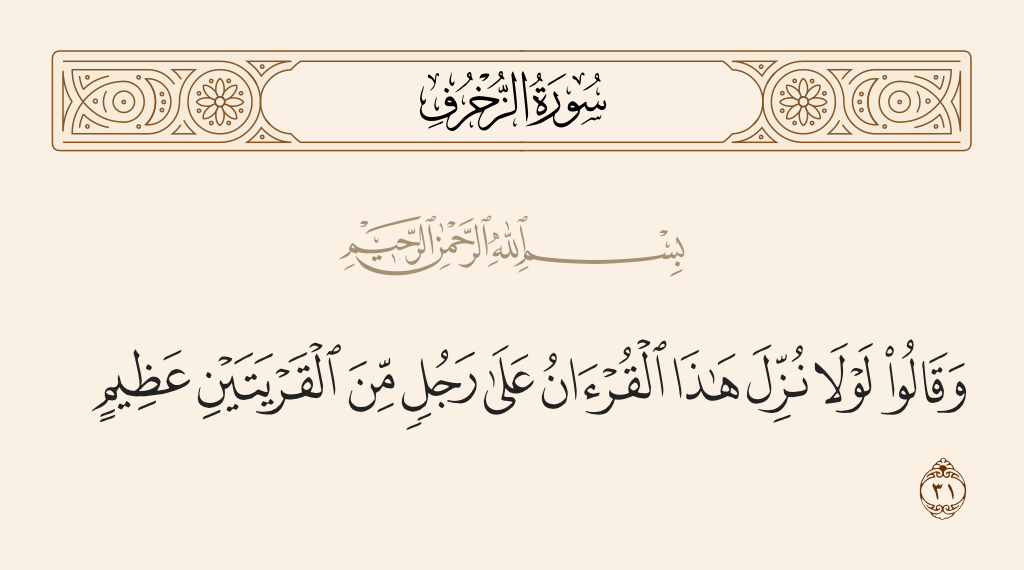 سُورَةُ الزُّخْرُفِ
بِسْمِ ٱللَّهِ ٱلرَّحْمَٰنِ ٱلرَّحِيمِ
وَقَالُوا۟ لَوْلَا نُزِّلَ هَٰذَا ٱلْقُرْءَانُ عَلَىٰ رَجُلٍ مِّنَ ٱلْقَرْيَتَيْنِ عَظِيمٍ
٣١